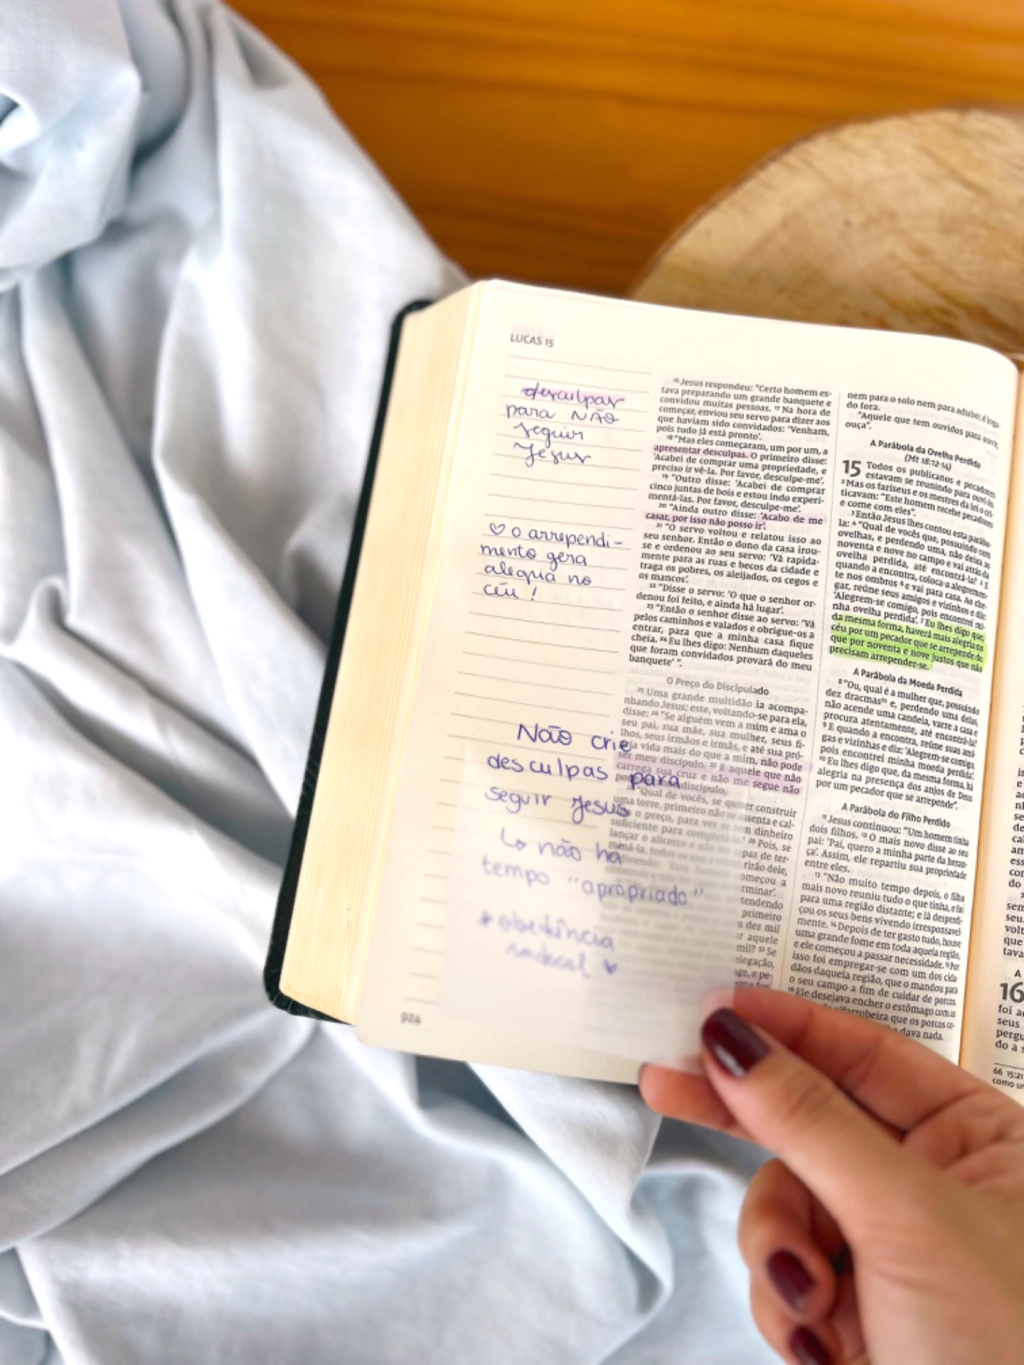 LUCAS 15
desculpas
para NÃO
seguir
Jesus
♡ o arrependi-
mento gera
alegria no
céu!
Não crie
desculpas para
seguir Jesus
↳ não há
tempo "apropriado"
*obediência
radical ♥
924
¹⁶Jesus respondeu: "Certo homem es-
tava preparando um grande banquete e
convidou muitas pessoas. ¹⁷Na hora de
começar, enviou seu servo para dizer aos
que haviam sido convidados: 'Venham,
pois tudo já está pronto'.
¹⁸"Mas eles começaram, um por um, a
apresentar desculpas. O primeiro disse:
'Acabei de comprar uma propriedade, e
preciso ir vê-la. Por favor, desculpe-me'.
¹⁹"Outro disse: 'Acabei de comprar
cinco juntas de bois e estou indo experi-
mentá-las. Por favor, desculpe-me'.
²⁰"Ainda outro disse: 'Acabo de me
casar, por isso não posso ir'.
²¹"O servo voltou e relatou isso ao
seu senhor. Então o dono da casa irou-
se e ordenou ao seu servo: 'Vá rapida-
mente para as ruas e becos da cidade e
traga os pobres, os aleijados, os cegos e
os mancos'.
²²"Disse o servo: 'O que o senhor or-
denou foi feito, e ainda há lugar'.
²³"Então o senhor disse ao servo: 'Vá
pelos caminhos e valados e obrigue-os a
entrar, para que a minha casa fique
cheia. ²⁴Eu lhes digo: Nenhum daqueles
que foram convidados provará do meu
banquete' ".
O Preço do Discipulado
²⁵Uma grande multidão ia acompa-
nhando Jesus; este, voltando-se para ela,
disse: ²⁶"Se alguém vem a mim e ama o
seu pai, sua mãe, sua mulher, seus fi-
lhos, seus irmãos e irmãs, e até sua pró-
vida mais do que a mim, não pode
ser meu discípulo. ²⁷E aquele que não
carrega sua cruz e não me segue não
discípulo.
²⁸"Qual de vocês, se quiser construir
uma torre, primeiro não se assenta e cal-
o preço, para ver se tem dinheiro
suficiente para completá-la? ²⁹Pois, se
lançar o alicerce e não
rirão dele,
omeçou a
rminar'.
tendendo
primeiro
dez mil
aquele
mil? ³²Se
legação,
nem para o solo nem para adubo; é joga-
do fora.
"Aquele que tem ouvidos para ouvir,
ouça".
A Parábola da Ovelha Perdida
(Mt 18:12-14)
15 Todos os publicanos e pecadores
estavam se reunindo para ouvi-lo.
²Mas os fariseus e os mestres da lei o cri-
ticavam: "Este homem recebe pecadores
e come com eles".
³Então Jesus lhes contou esta parábo-
la: ⁴"Qual de vocês que, possuindo cem
ovelhas, e perdendo uma, não deixa as
noventa e nove no campo e vai atrás da
ovelha perdida, até encontrá-la? ⁵E
quando a encontra, coloca-a alegremen-
te nos ombros ⁶e vai para casa. Ao che-
gar, reúne seus amigos e vizinhos e diz:
'Alegrem-se comigo, pois encontrei mi-
nha ovelha perdida'. ⁷Eu lhes digo que,
da mesma forma, haverá mais alegria no
céu por um pecador que se arrepende do
que por noventa e nove justos que não
precisam arrepender-se.
A Parábola da Moeda Perdida
⁸"Ou, qual é a mulher que, possuindo
dez dracmas⁶⁵ e, perdendo uma delas,
não acende uma candeia, varre a casa e
procura atentamente, até encontrá-la?
⁹E quando a encontra, reúne suas ami-
gas e vizinhas e diz: 'Alegrem-se comigo,
pois encontrei minha moeda perdida'.
¹⁰Eu lhes digo que, da mesma forma, há
alegria na presença dos anjos de Deus
por um pecador que se arrepende".
A Parábola do Filho Perdido
¹¹Jesus continuou: "Um homem tinha
dois filhos. ¹²O mais novo disse ao seu
pai: 'Pai, quero a minha parte da heran-
ça'. Assim, ele repartiu sua propriedade
entre eles.
¹³"Não muito tempo depois, o filho
mais novo reuniu tudo o que tinha, e foi
para uma região distante; e lá desperdi-
çou os seus bens vivendo irresponsavel-
mente. ¹⁴Depois de ter gasto tudo, houve
uma grande fome em toda aquela região,
e ele começou a passar necessidade. ¹⁵Por
isso foi empregar-se com um dos cida-
dãos daquela região, que o mandou para
o seu campo a fim de cuidar de porcos.
¹⁶Ele desejava encher o estômago com as
alfarrobeira que os porcos co-
dava nada.
16
foi ac
seus
pergu
do a s
66 15:21
como um